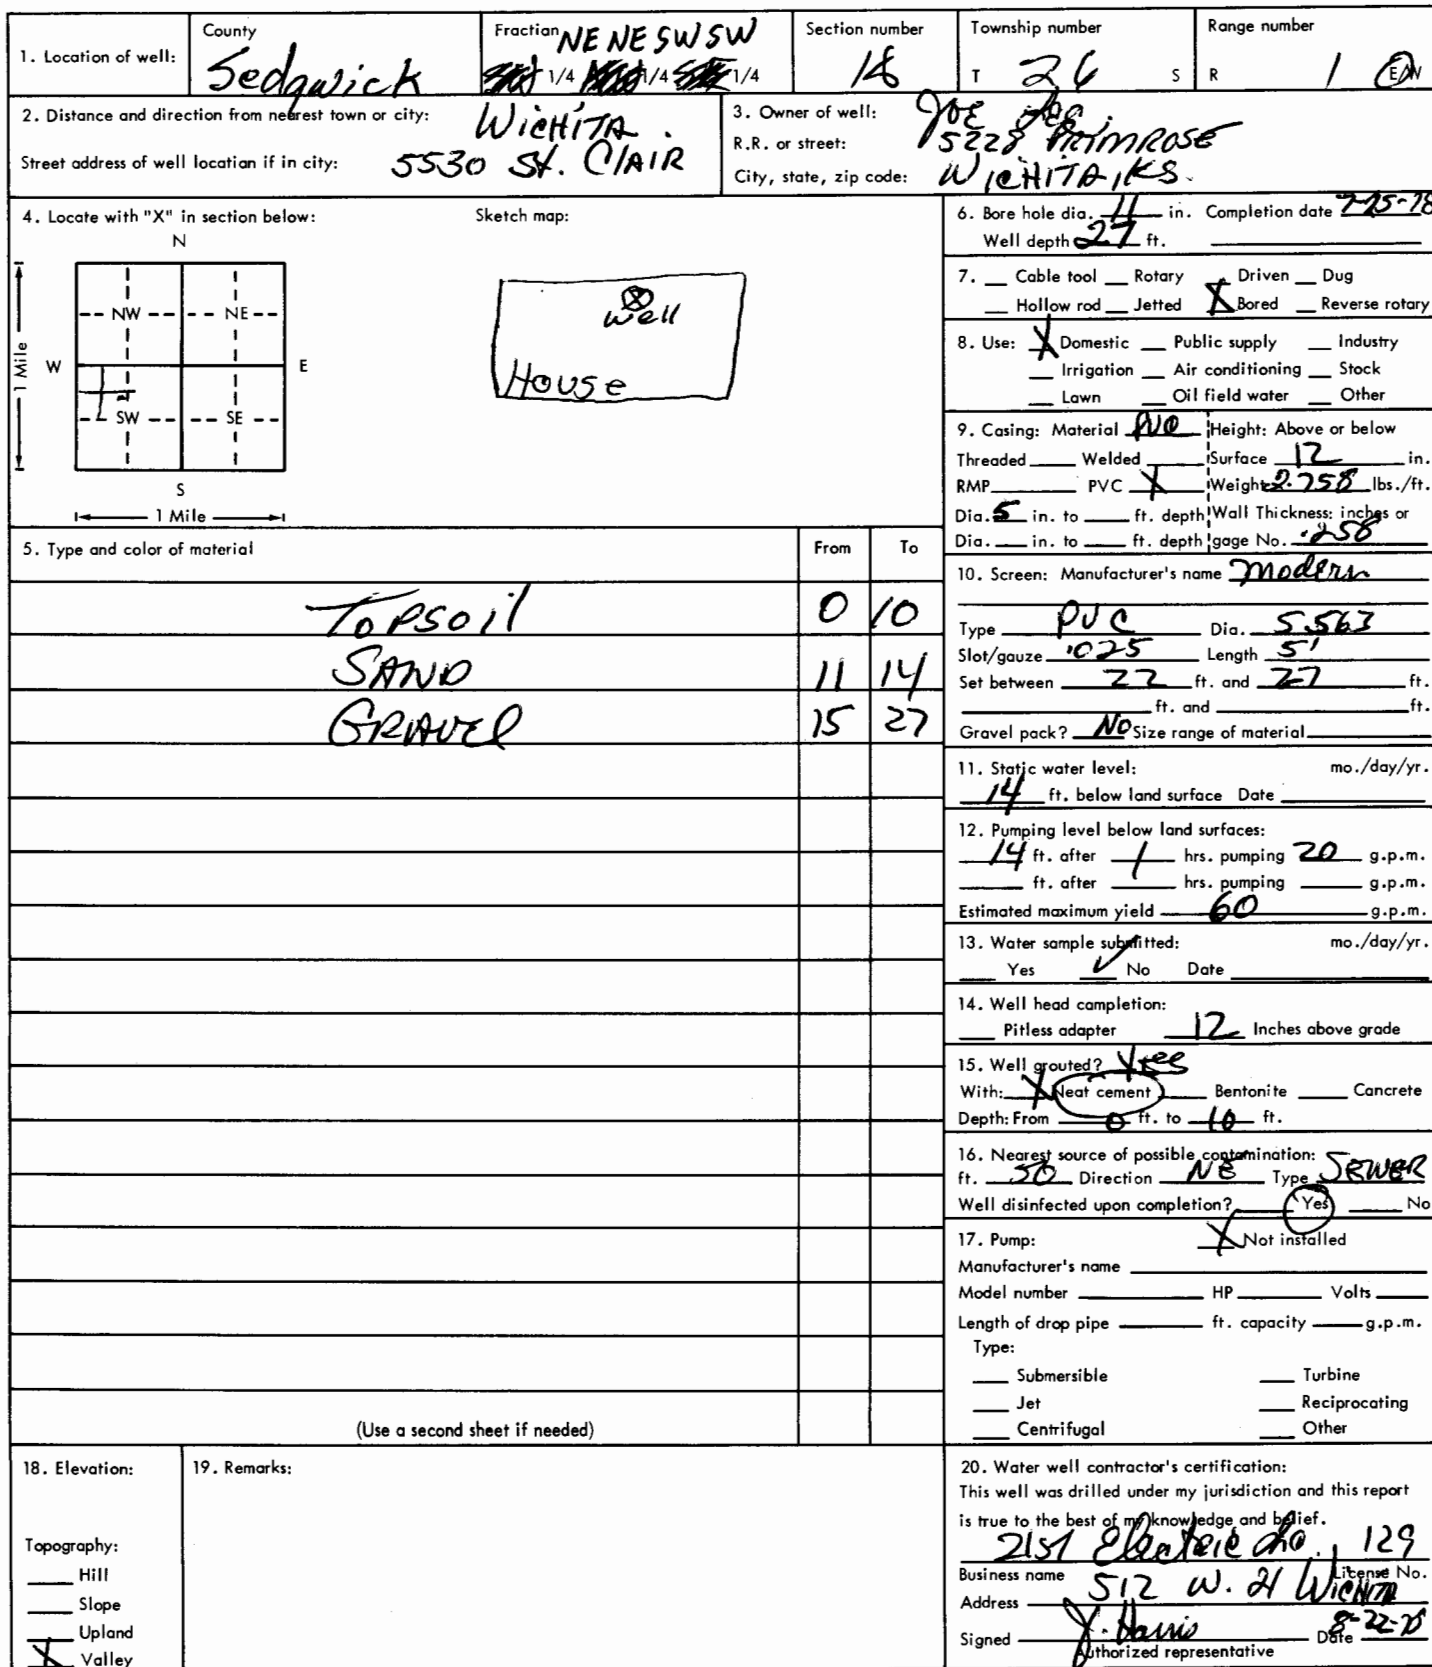 1. Location of well:
County
Sedgwick
Fraction NE NE SW SW
1/4 1/4 1/4
Section number
18
Township number
T 26 S
Range number
R 1 E/W
2. Distance and direction from nearest town or city: WICHITA.
Street address of well location if in city: 5530 St. CLAIR
3. Owner of well: JOE
R.R. or street: 5228 PRIMROSE
City, state, zip code: WICHITA, KS.
4. Locate with "X" in section below:
N
NW NE
W E
SW SE
S
1 Mile
1 Mile
Sketch map:
Well
House
5. Type and color of material From To
TOPSOIL 0 10
SAND 11 14
GRAVEL 15 27
(Use a second sheet if needed)
6. Bore hole dia. 11 in. Completion date 7-25-78
Well depth 27 ft.
7. __ Cable tool __ Rotary __ Driven __ Dug
__ Hollow rod __ Jetted X Bored __ Reverse rotary
8. Use: X Domestic __ Public supply __ Industry
__ Irrigation __ Air conditioning __ Stock
__ Lawn __ Oil field water __ Other
9. Casing: Material PVC Height: Above or below
Threaded __ Welded __ Surface 12 in.
RMP __ PVC X Weight 2.758 lbs./ft.
Dia. 5 in. to __ ft. depth Wall Thickness: inches or
Dia. __ in. to __ ft. depth gage No. .258
10. Screen: Manufacturer's name Modern
Type PVC Dia. 5.563
Slot/gauze .025 Length 5'
Set between 22 ft. and 27 ft.
__ ft. and __ ft.
Gravel pack? NO Size range of material __
11. Static water level: mo./day/yr.
14 ft. below land surface Date __
12. Pumping level below land surfaces:
14 ft. after 1 hrs. pumping 20 g.p.m.
__ ft. after __ hrs. pumping __ g.p.m.
Estimated maximum yield 60 g.p.m.
13. Water sample submitted: mo./day/yr.
__ Yes ✓ No Date __
14. Well head completion:
__ Pitless adapter 12 Inches above grade
15. Well grouted? Yes
With: X Neat cement __ Bentonite __ Cancrete
Depth: From 0 ft. to 10 ft.
16. Nearest source of possible contamination:
ft. 50 Direction NE Type SEWER
Well disinfected upon completion? __ Yes __ No
17. Pump: X Not installed
Manufacturer's name __
Model number __ HP __ Volts __
Length of drop pipe __ ft. capacity __ g.p.m.
Type:
__ Submersible __ Turbine
__ Jet __ Reciprocating
__ Centrifugal __ Other
18. Elevation:
Topography:
__ Hill
__ Slope
__ Upland
X Valley
19. Remarks:
20. Water well contractor's certification:
This well was drilled under my jurisdiction and this report
is true to the best of my knowledge and belief.
21st Electric Co. 129
Business name License No.
Address 512 W. 21 WICHITA
Signed J. Harris Date 8-22-78
Authorized representative